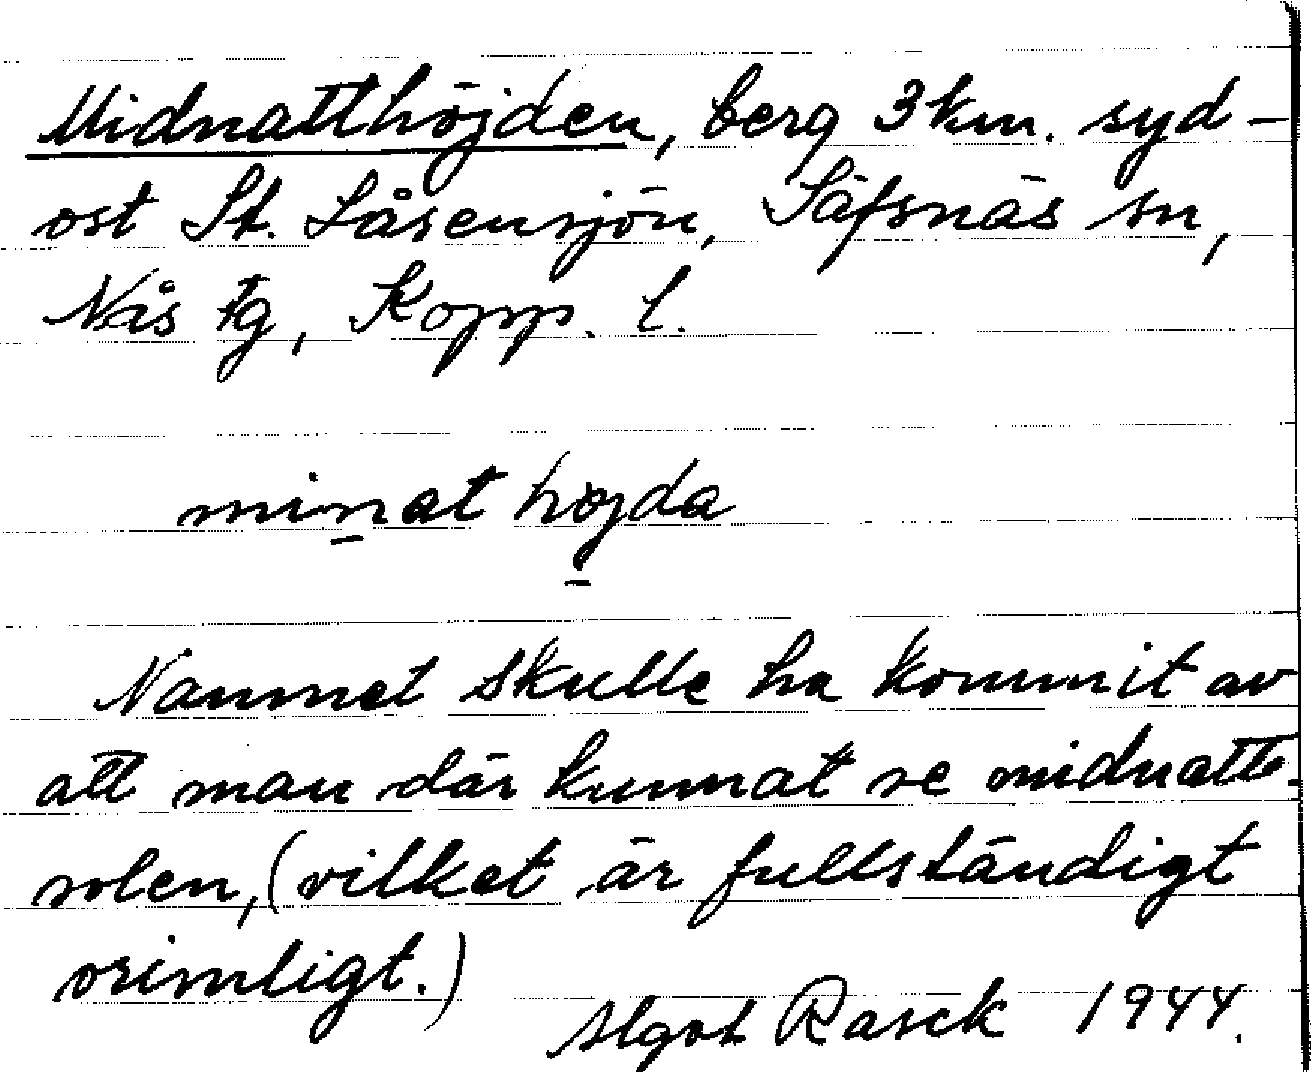 Midnatthöjden, berg 3 km. syd-
ost St. Låsensjön, Säfsnäs sn,
Nås tg, Kopp. l.
minat högda
Namnet skulle ha kommit av
att man där kunnat se midnatts-
solen, (vilket är fullständigt
orimligt.)
Algot Rasck 1944.